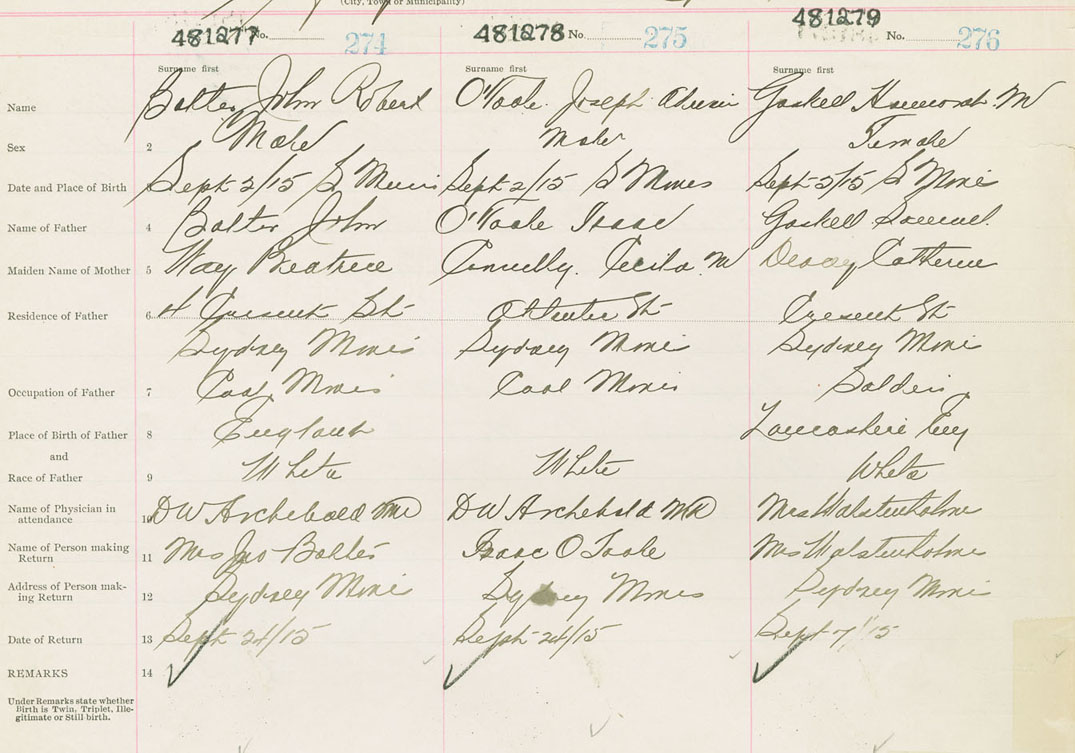 (City, Town or Municipality)
481277 No. 274 481278 No. 275 481279 No. 276
Surname first Surname first Surname first
Name Balter John Robert O'Toole Joseph Gaskell M
Sex 2 Male Male Female
Date and Place of Birth Sept 2/15 S Mines Sept 2/15 S Mines Sept 3/15 S Mines
Name of Father 4 Balter John O'Toole Isaac Gaskell Samuel
Maiden Name of Mother 5 Way Beatrice Connelly Cecila M Catherine
Residence of Father 6 Cresent St St Cresent St
Sydney Mines Sydney Mines Sydney Mines
Occupation of Father 7 Coal Mines Coal Mines Solder
Place of Birth of Father 8 England Lancashire Eng
and
Race of Father 9 White White White
Name of Physician in
attendance 10 DW Archebald MD DW Archebald MD Mrs Walstenholme
Name of Person making
Return 11 Mrs Jno Balter Isaac O Toole Mrs Walstenholme
Address of Person mak-
ing Return 12 Sydney Mines Sydney Mines Sydney Mines
Date of Return 13 Sept 24/15 Sept 24/15 Sept 7/15
REMARKS 14
Under Remarks state whether
Birth is Twin, Triplet, Ille-
gitimate or Still birth.